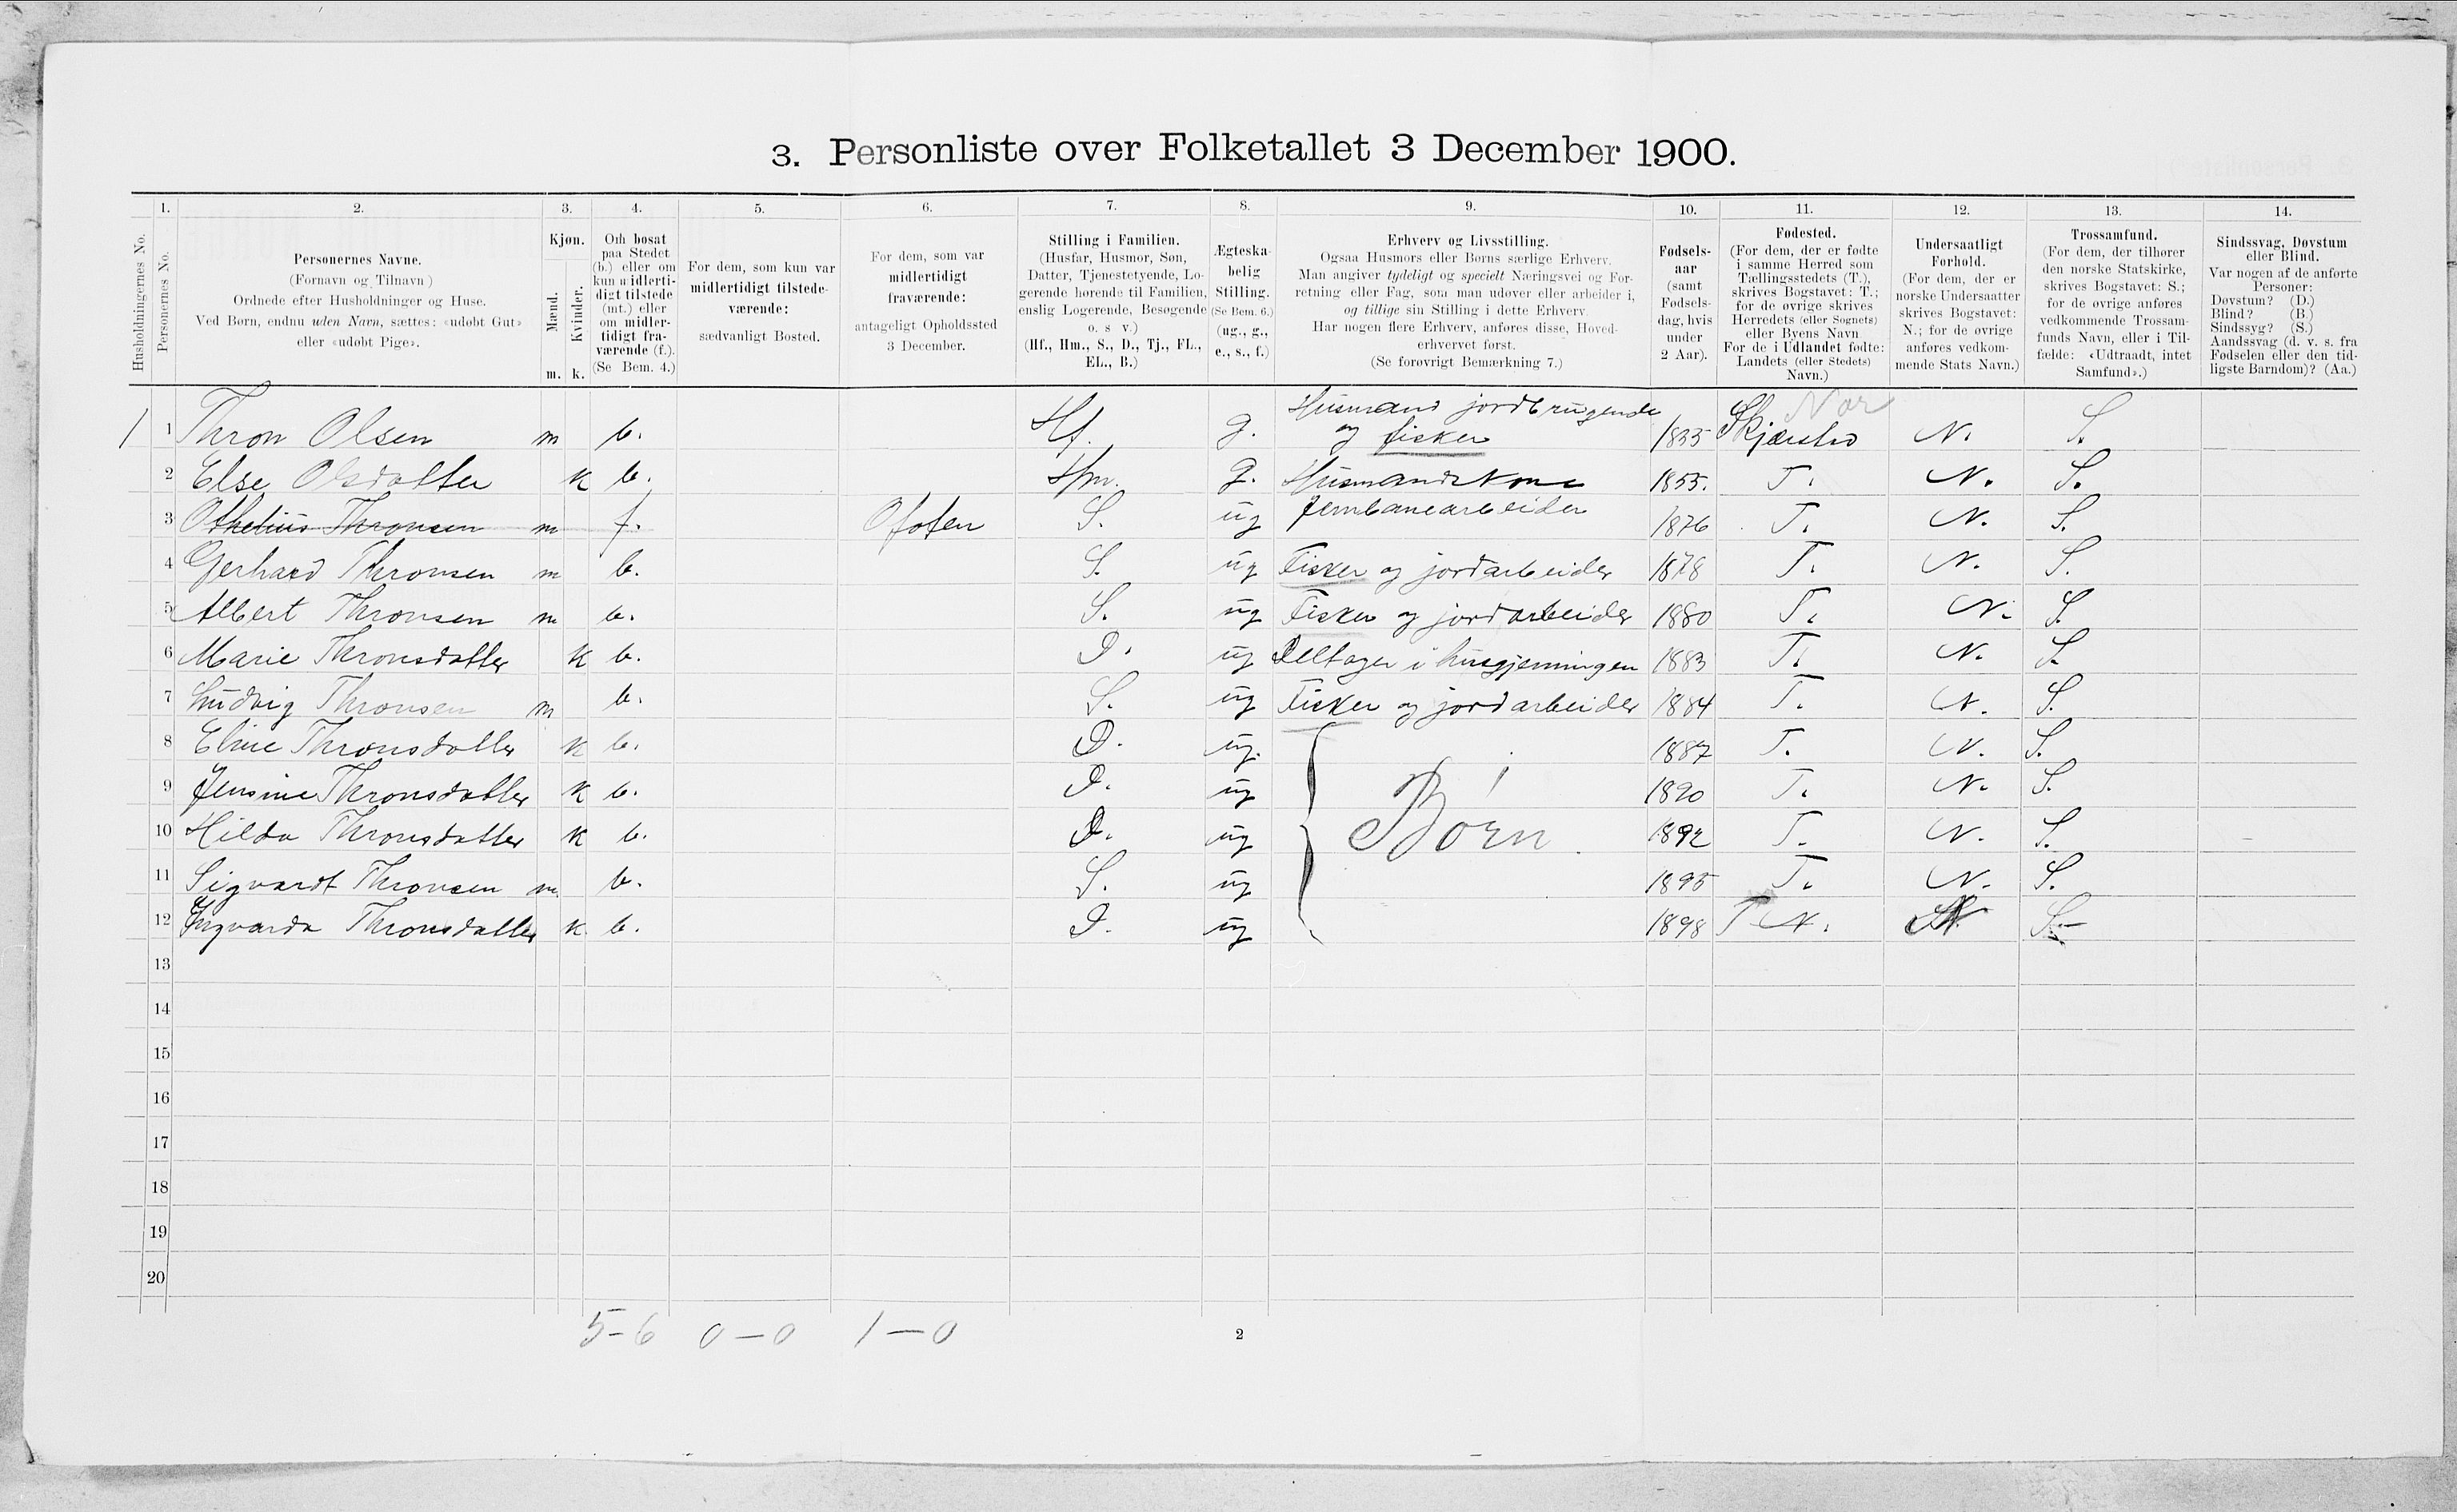 3. Personliste over Folketallet 3 December 1900.
1. 2. 3. 4. 5. 6. 7. 8. 9. 10. 11. 12. 13. 14.
Husholdningernes No.
Personernes No.
Personernes Navne.
(Fornavn og Tilnavn)
Ordnede efter Husholdninger og Huse.
Ved Børn, endnu uden Navn, sættes: «udøbt Gut»
eller «udøbt Pige».
Kjøn.
Mænd.
Kvinder.
m. k.
Om bosat
paa Stedet
(b.) eller om
kun midlerti-
digt tilstede
(mt.) eller
om midler-
tidigt fra-
værende (f.).
(Se Bem. 4.)
For dem, som kun var
midlertidigt tilstede-
værende:
sædvanligt Bosted.
For dem, som var
midlertidigt
fraværende:
antageligt Opholdssted
3 December.
Stilling i Familien.
(Husfar, Husmor, Søn,
Datter, Tjenestetyende, Lo-
gerende hørende til Familien,
enslig Logerende, Besøgende
o. s v.)
(Hf., Hm., S., D., Tj., FL.,
EL., B.)
Ægteska-
belig
Stilling.
(Se Bem. 6.)
(ug., g.,
e., s., f.)
Erhverv og Livsstilling.
Ogsaa Husmors eller Børns særlige Erhverv.
Man angiver tydeligt og specielt Næringsvei og For-
retning eller Fag, som man udøver eller arbeider i,
og tillige sin Stilling i dette Erhverv.
Har nogen flere Erhverv, anføres disse, Hoved-
erhvervet først.
(Se forøvrigt Bemærkning 7.)
Fødsels-
aar
(samt
Fødsels-
dag, hvis
under
2 Aar).
Fødested.
(For dem, der er fødte
i samme Herred som
Tællingsstedets (T.),
skrives Bogstavet: T.;
for de øvrige skrives
Herredets (eller Sognets)
eller Byens Navn
For de i Udlandet fødte:
Landets (eller Stedets)
Navn.)
Undersaatligt
Forhold.
(For dem, der er
norske Undersaatter
skrives Bogstavet:
N.; for de øvrige
anføres vedkom-
mende Stats Navn.)
Trossamfund.
(For dem, der tilhører
den norske Statskirke,
skrives Bogstavet: S.;
for de øvrige anføres
vedkommende Trossam-
funds Navn, eller i Til-
fælde: «Udtraadt, intet
Samfund».)
Sindssvag, Døvstum
eller Blind.
Var nogen af de anførte
Personer:
Døvstum? (D.)
Blind? (B.)
Sindssyg? (S.)
Aandssvag (d. v. s. fra
Fødselen eller den tid-
ligste Barndom)? (Aa.)
Husmand jordbrugende Nor
1 1 Thron Olsen m b. Hf. g. og fisker 1835 Skjerstad N. S.
2 Else Olsdatter k b. Hm. g. Husmandskone 1855. T. N. S.
3 Othelius Thronsen m f. Ofoten S. ug Jernbanearbeider 1876 T. N. S.
4 Gerhard Thronsen m b. S. ug Fisker og jordarbeider 1878 T. N. S.
5 Albert Thronsen m b. S. ug Fisker og jordarbeider 1880 T. N. S.
6 Marie Thronsdatter k b. D. ug Deltager i husgjerningen 1883 T. N. S.
7 Ludvig Thronsen m b. S. ug Fisker og jordarbeider 1884 T. N. S.
8 Eline Thronsdatter k b. D. ug. 1887 T. N. S.
9 Jensine Thronsdatter k b. D. ug 1890 T. N. S.
10 Hilda Thronsdatter k b. D. ug Børn. 1892 T. N. S.
11 Sigvardt Thronsen m. b. S. ug 1895 T. N. S.
12 Ingvarda Thronsdatter k b. D. ug 1898 T N. N S.
13
14
15
16
17
18
19
20
5-6 0-0 1-0 2